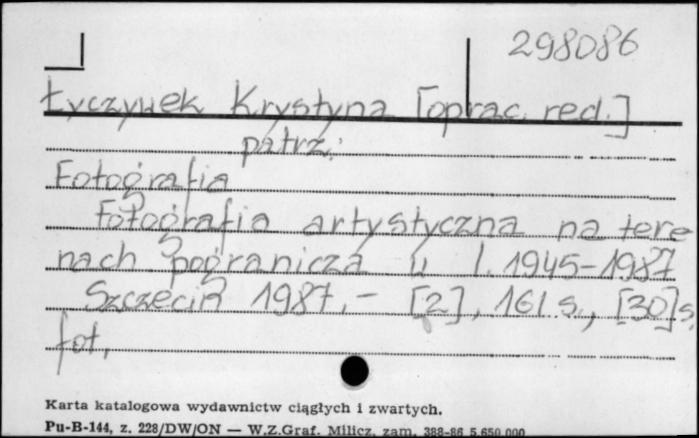 298086
Łyczywek Krystyna [oprac. red.]
patrz:
Fotografia
Fotografia artystyczna na tere
nach pogranicza w l. 1945-1987
Szczecin 1987.- [2], 161 s., [30] s.
fot.
Karta katalogowa wydawnictw ciągłych i zwartych.
Pu-B-144, z. 228/DW/ON — W.Z.Graf. Milicz, zam. 388-86 5.650.000